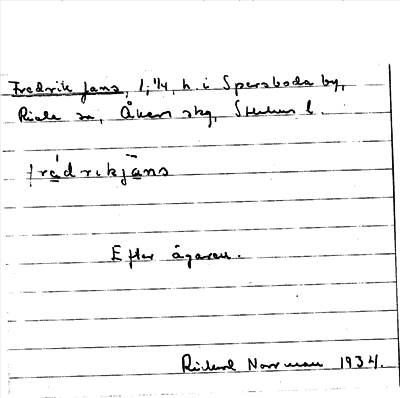 Fredrik Jans, 1, 1/4, h. i Spersboda by,
Riala sn, Åkers skg, Sthlms l.
frádrikjāns
Efter ägaren.
Rickard Norrman 1934.